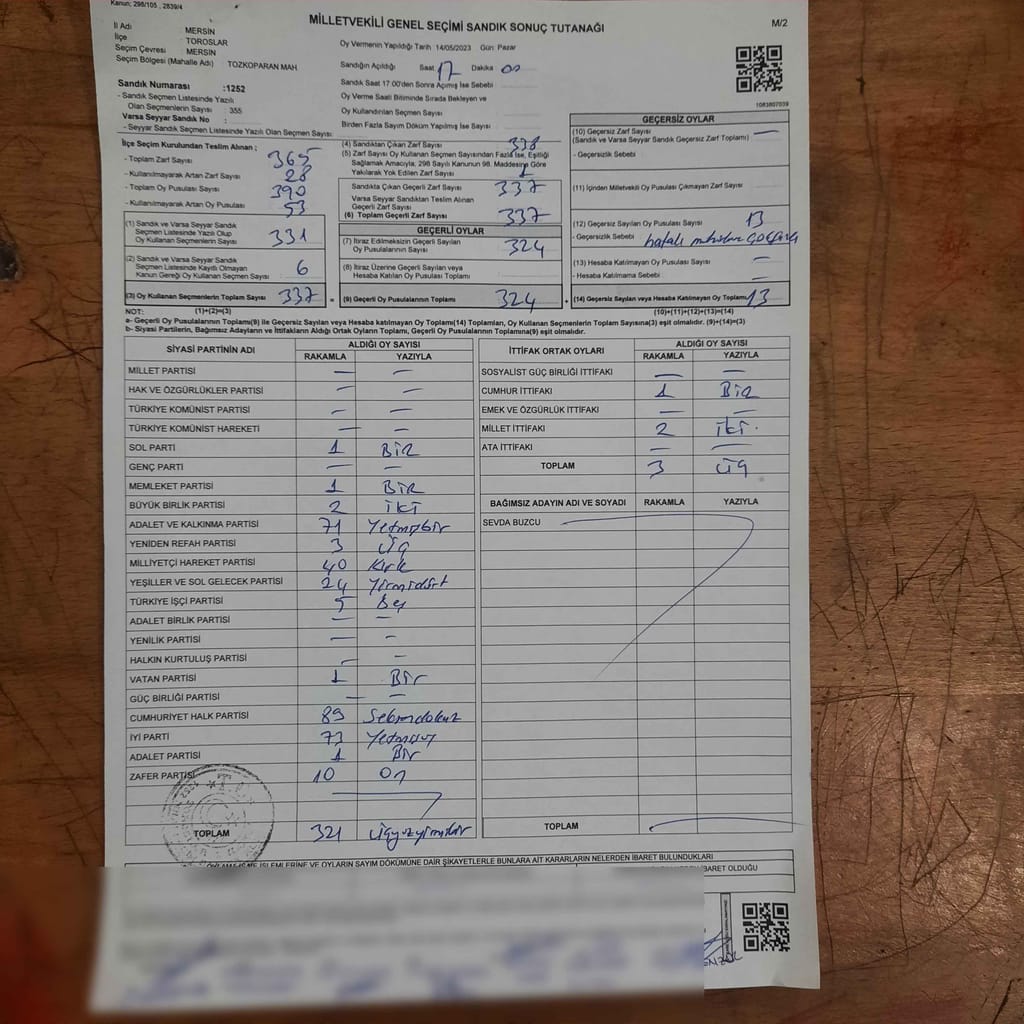 Kanun; 298/105 , 2839/4
MİLLETVEKİLİ GENEL SEÇİMİ SANDIK SONUÇ TUTANAĞI
M/2
İl Adı MERSİN
İlçe TOROSLAR
Seçim Çevresi MERSİN
Seçim Bölgesi (Mahalle Adı) TOZKOPARAN MAH
Oy Vermenin Yapıldığı Tarih 14/05/2023 Gün Pazar
Sandığın Açıldığı Saat 17 Dakika 00
Sandık Saat 17.00'den Sonra Açılmış İse Sebebi
Oy Verme Saati Bitiminde Sırada Bekleyen ve
Oy Kullandırılan Seçmen Sayısı
Birden Fazla Sayım Döküm Yapılmış İse Sayısı
1083807039
Sandık Numarası :1252
- Sandık Seçmen Listesinde Yazılı
Olan Seçmenlerin Sayısı 355
Varsa Seyyar Sandık No :
- Seyyar Sandık Seçmen Listesinde Yazılı Olan Seçmen Sayısı
İlçe Seçim Kurulundan Teslim Alınan ;
- Toplam Zarf Sayısı 365
- Kullanılmayarak Artan Zarf Sayısı 28
- Toplam Oy Pusulası Sayısı 390
- Kullanılmayarak Artan Oy Pusulası 53
(1) Sandık ve Varsa Seyyar Sandık
Seçmen Listesinde Yazılı Olup
Oy Kullanan Seçmenlerin Sayısı 331
(2) Sandık ve Varsa Seyyar Sandık
Seçmen Listesinde Kayıtlı Olmayan
Kanun Gereği Oy Kullanan Seçmen Sayısı 6
(3) Oy Kullanan Seçmenlerin Toplam Sayısı 337
(1)+(2)=(3)
(4) Sandıktan Çıkan Zarf Sayısı 338
(5) Zarf Sayısı Oy Kullanan Seçmen Sayısından Fazla İse, Eşitliği
Sağlamak Amacıyla; 298 Sayılı Kanunun 98. Maddesine Göre
Yakılarak Yok Edilen Zarf Sayısı 1
Sandıkta Çıkan Geçerli Zarf Sayısı 337
Varsa Seyyar Sandıktan Teslim Alınan
Geçerli Zarf Sayısı
(6) Toplam Geçerli Zarf Sayısı 337
GEÇERLİ OYLAR
(7) İtiraz Edilmeksizin Geçerli Sayılan
Oy Pusulalarının Sayısı 324
(8) İtiraz Üzerine Geçerli Sayılan veya
Hesaba Katılan Oy Pusulası Toplamı
= (9) Geçerli Oy Pusulalarının Toplamı 324
GEÇERSİZ OYLAR
(10) Geçersiz Zarf Sayısı —
(Sandık ve Varsa Seyyar Sandık Geçersiz Zarf Toplamı)
- Geçersizlik Sebebi
(11) İçinden Milletvekili Oy Pusulası Çıkmayan Zarf Sayısı
(12) Geçersiz Sayılan Oy Pusulası Sayısı 13
- Geçersizlik Sebebi hatalı
(13) Hesaba Katılmayan Oy Pusulası Sayısı —
- Hesaba Katılmama Sebebi —
+ (14) Geçersiz Sayılan veya Hesaba Katılmayan Oy Toplamı 13
(10)+(11)+(12)+(13)=(14)
NOT:
a- Geçerli Oy Pusulalarının Toplamı(9) ile Geçersiz Sayılan veya Hesaba katılmayan Oy Toplamı(14) Toplamları, Oy Kullanan Seçmenlerin Toplam Sayısına(3) eşit olmalıdır. (9)+(14)=(3)
b- Siyasi Partilerin, Bağımsız Adayların ve İttifakların Aldığı Ortak Oyların Toplamı, Geçerli Oy Pusulalarının Toplamına(9) eşit olmalıdır.
SİYASİ PARTİNİN ADI ALDIĞI OY SAYISI
RAKAMLA YAZIYLA
MİLLET PARTİSİ — —
HAK VE ÖZGÜRLÜKLER PARTİSİ — —
TÜRKİYE KOMÜNİST PARTİSİ — —
TÜRKİYE KOMÜNİST HAREKETİ — —
SOL PARTİ 1 BİR
GENÇ PARTİ — —
MEMLEKET PARTİSİ 1 BİR
BÜYÜK BİRLİK PARTİSİ 2 iki
ADALET VE KALKINMA PARTİSİ 71 Yetmişbir
YENİDEN REFAH PARTİSİ 3 üç
MİLLİYETÇİ HAREKET PARTİSİ 40 Kırk
YEŞİLLER VE SOL GELECEK PARTİSİ 24 Yirmidört
TÜRKİYE İŞÇİ PARTİSİ 5 Beş
ADALET BİRLİK PARTİSİ — —
YENİLİK PARTİSİ — -
HALKIN KURTULUŞ PARTİSİ — —
VATAN PARTİSİ 1 Bir
GÜÇ BİRLİĞİ PARTİSİ — —
CUMHURİYET HALK PARTİSİ 89 Seksendokuz
İYİ PARTİ 73 Yetmişüç
ADALET PARTİSİ 1 Bir
ZAFER PARTİSİ 10 On
TOPLAM 321 üçyüzyirmibir
İTTİFAK ORTAK OYLARI ALDIĞI OY SAYISI
RAKAMLA YAZIYLA
SOSYALİST GÜÇ BİRLİĞİ İTTİFAKI — —
CUMHUR İTTİFAKI 1 BİR
EMEK VE ÖZGÜRLÜK İTTİFAKI — —
MİLLET İTTİFAKI 2 iki.
ATA İTTİFAKI — —
TOPLAM 3 üç
BAĞIMSIZ ADAYIN ADI VE SOYADI RAKAMLA YAZIYLA
SEVDA BUZCU
TOPLAM
OYLAMA İŞ VE İŞLEMLERİNE VE OYLARIN SAYIM DÖKÜMÜNE DAİR ŞİKAYETLERLE BUNLARA AİT KARARLARIN NELERDEN İBARET BULUNDUKLARI
İBARET OLDUĞU